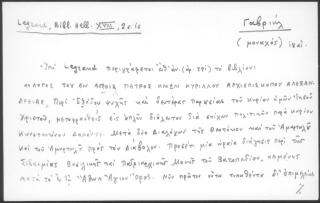 Legrand, Bibl. Hell. XVIII, 2, σ. 10
Γαβριήλ
(μοναχός) ιπί.
Ὑπὸ Legrand περιγράφεται ὑπ' ἀν. (ἀρ. 591) τὸ βιβλίον:
«ΛΟΓΟΣ ΤΟΥ ΕΝ ΑΓΙΟΙΣ ΠΑΤΡΟΣ ΗΜΩΝ ΚΥΡΙΛΛΟΥ ΑΡΧΙΕΠΙΣΚΟΠΟΥ ΑΛΕΞΑΝ-
ΔΡΕΙΑΣ, Περὶ Ἐξόδου ψυχῆς καὶ δευτέρας Παρουσίας τοῦ Κυρίου ἡμῶν Ἰησοῦ
Χριστοῦ, μεταφρασθεὶς εἰς ἁπλῆν διάλεκτον διὰ στίχων πολιτικῶν παρὰ κυρίου
Κωνσταντίνου Δαπόντε. Μετὰ δύο Διαλόγων τῆς Θεοτόκου καὶ τοῦ Ἁμαρτωλοῦ
καὶ τοῦ Ἁμαρτωλοῦ πρὸς τὸν Διάβολον. Προσέτι μία ὡραία διήγησις περὶ τῆς
Σεβασμίας Βασιλικῆς καὶ Πατριαρχικῆς Μονῆς τοῦ Βατοπαιδίου, κειμένης
κατὰ τὸ Ἅγιον Ὄρος. Νῦν πρῶτον τύποις ἐκδοθέντα δι' ἐπιμελείας
%